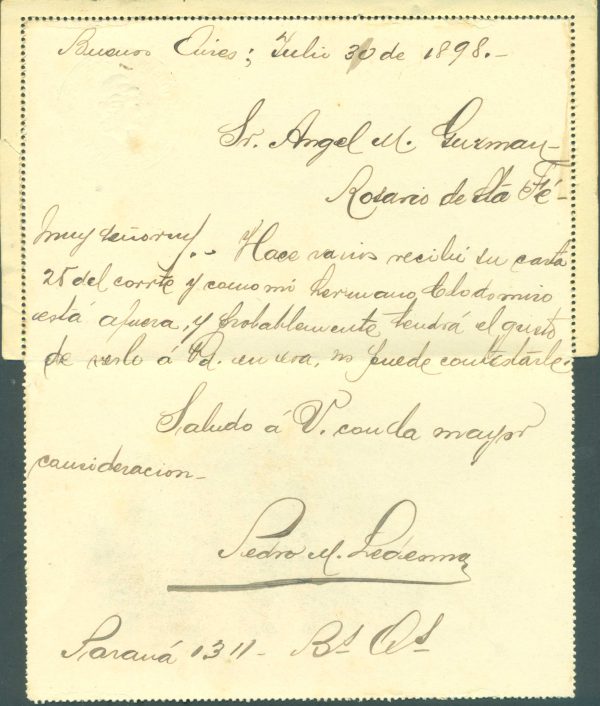 Buenos Aires; Julio 30 de 1898.-
Sr. Angel M. Guzman-
Rosario de Sta Fé-
Muy señor mio.- Hace varios recibí su carta
25 del corrte y como mi hermano Clodomiro
está afuera, y probablemente tendrá el gusto
de verlo á Vd. en esa, no puede contestarle.
Saludo á V. con la mayor
consideracion-
Pedro M. Ledesma
Paraná 1311- Bs As